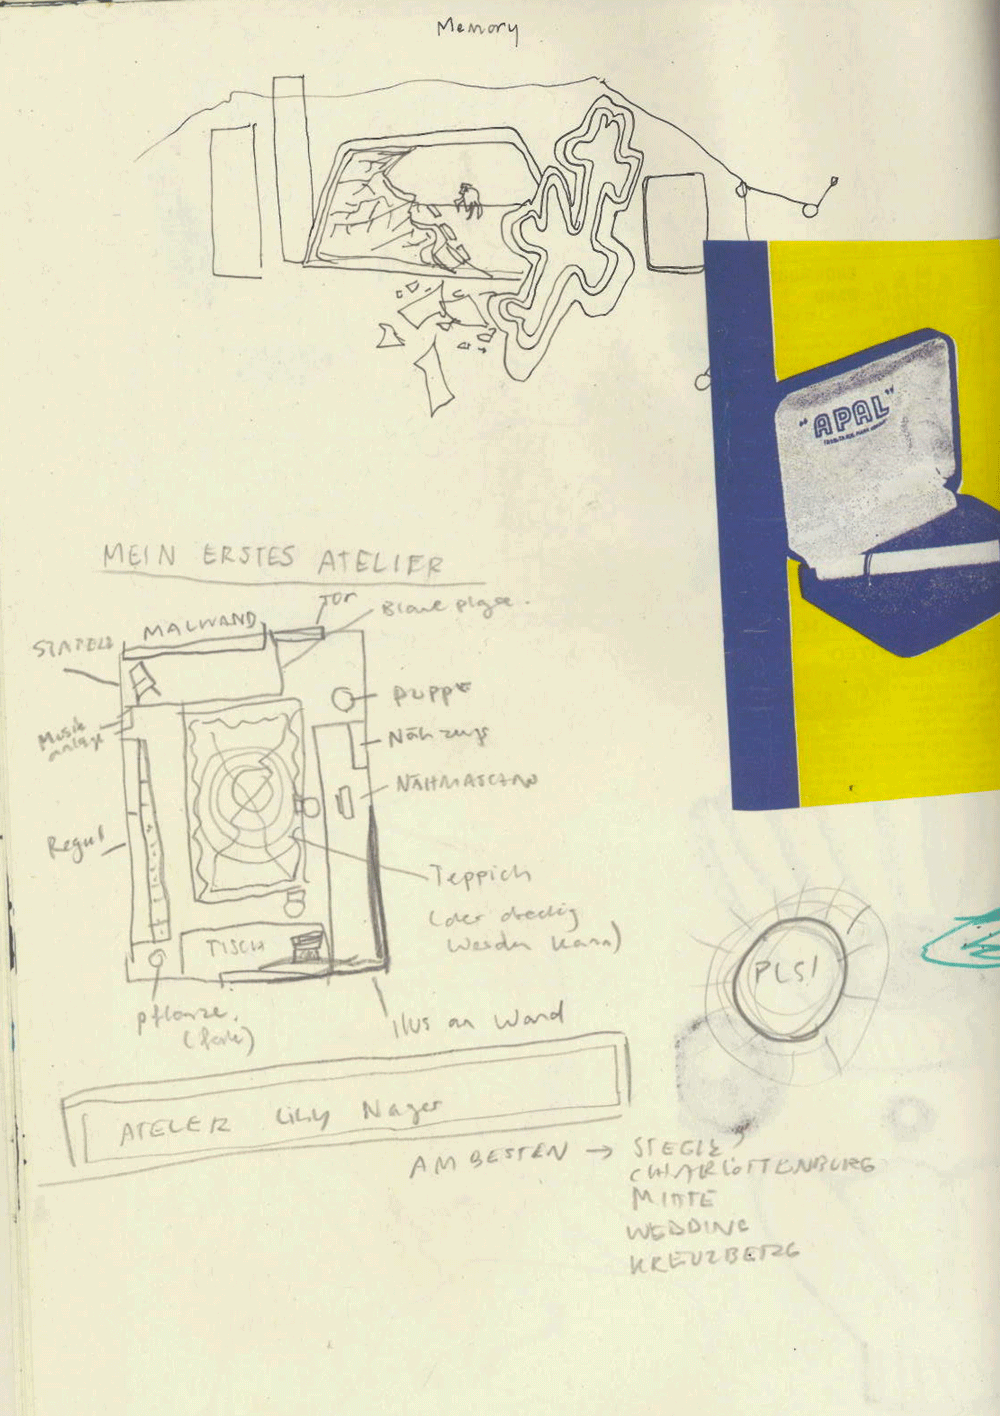 Memory
"APAL"
MEIN ERSTES ATELIER
TÜR
Blaue plane.
MALWAND
STAFELEI
puppe
Musik
anlage
Nähzeug
NÄHMASCHIN
Regal
Teppich
(der dreckig
werden kann)
TISCH
PLS!
pflanze.
Ilus an Wand
ATELER Lilly Nager
AM BESTEN → STEGLZ
CHARLOTTENBURG
MITTE
WEDDING
KREUZBERG